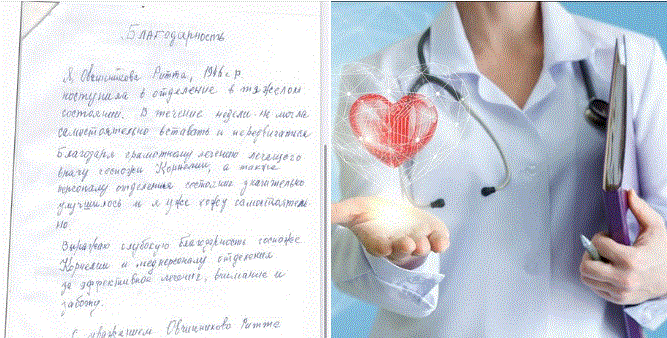 Благодарность
Я, Овчинникова Ритта, 1966 г.р.
поступила в отделение в тяжелом
состоянии. В течение недели не могла
самостоятельно вставать и передвигаться
Благодаря грамотному лечению лечащего
врачу госпожи Корнелии, а также
персоналу отделения состояние значительно
улучшилось и я уже хожу самостоятель-
но.
Выражаю глубокую благодарность госпоже
Корнелии и медперсоналу отделения
за эффективное лечение, внимание и
заботу.
С уважением Овчинникова Ритта